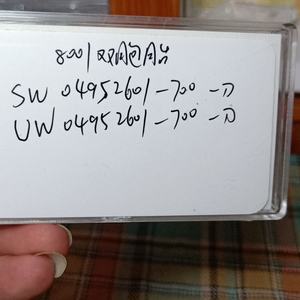 8001双网电容
SW 04952601-700-D
UW 04952601-700-D